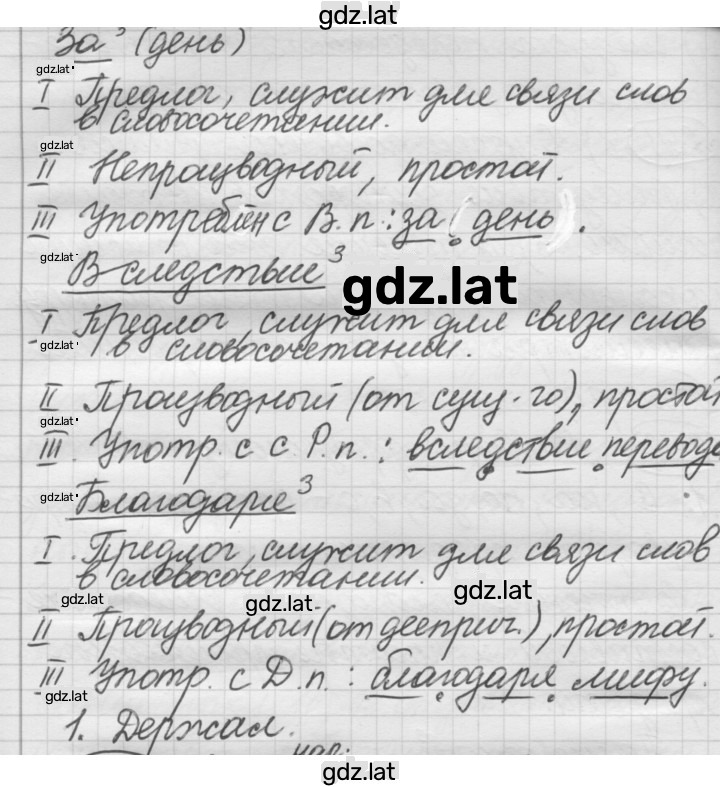 gdz.lat
За³ (день)
gdz.lat
I Предлог, служит для связи слов
в словосочетании.
gdz.lat
II Непроизводный, простой.
III Употреблён с В.п.: за (день).
gdz.lat
Вследствие³
gdz.lat
I Предлог, служит для связи слов
gdz.lat
в словосочетании.
II Производный (от сущ-го), простой
gdz.lat
III. Употр. с с Р.п.: вследствие перевода
gdz.lat
Благодаря³
I. Предлог, служит для связи слов
в словосочетании.
gdz.lat gdz.lat gdz.lat
II Производный (от дееприч.), простой.
III Употр. с Д.п.: благодаря мифу.
gdz.lat
1. Держал.
нар.
gdz.lat